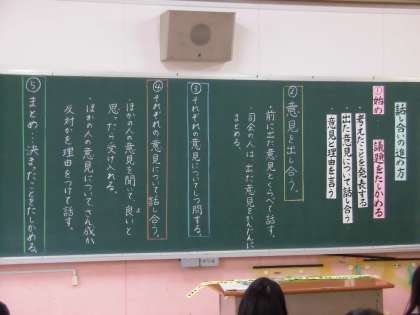 話し合いの進め方
①始め 議題をたしかめる
・考えたことを発表する
・出た意見について話し合う
・意見と理由を言う
②意見を出し合う。
・前に出た意見とくらべて話す。
・司会の人は、出た意見をかんたんに
まとめる。
③それぞれの意見についてしつ問する。
④それぞれの意見について話し合う。
・ほかの人の意見を聞いて、良いと
よ
思ったら受け入れる。
・ほかの人の意見について、さん成か
反対かを理由をつけて話す。
⑤まとめ…決まったことをたしかめる。